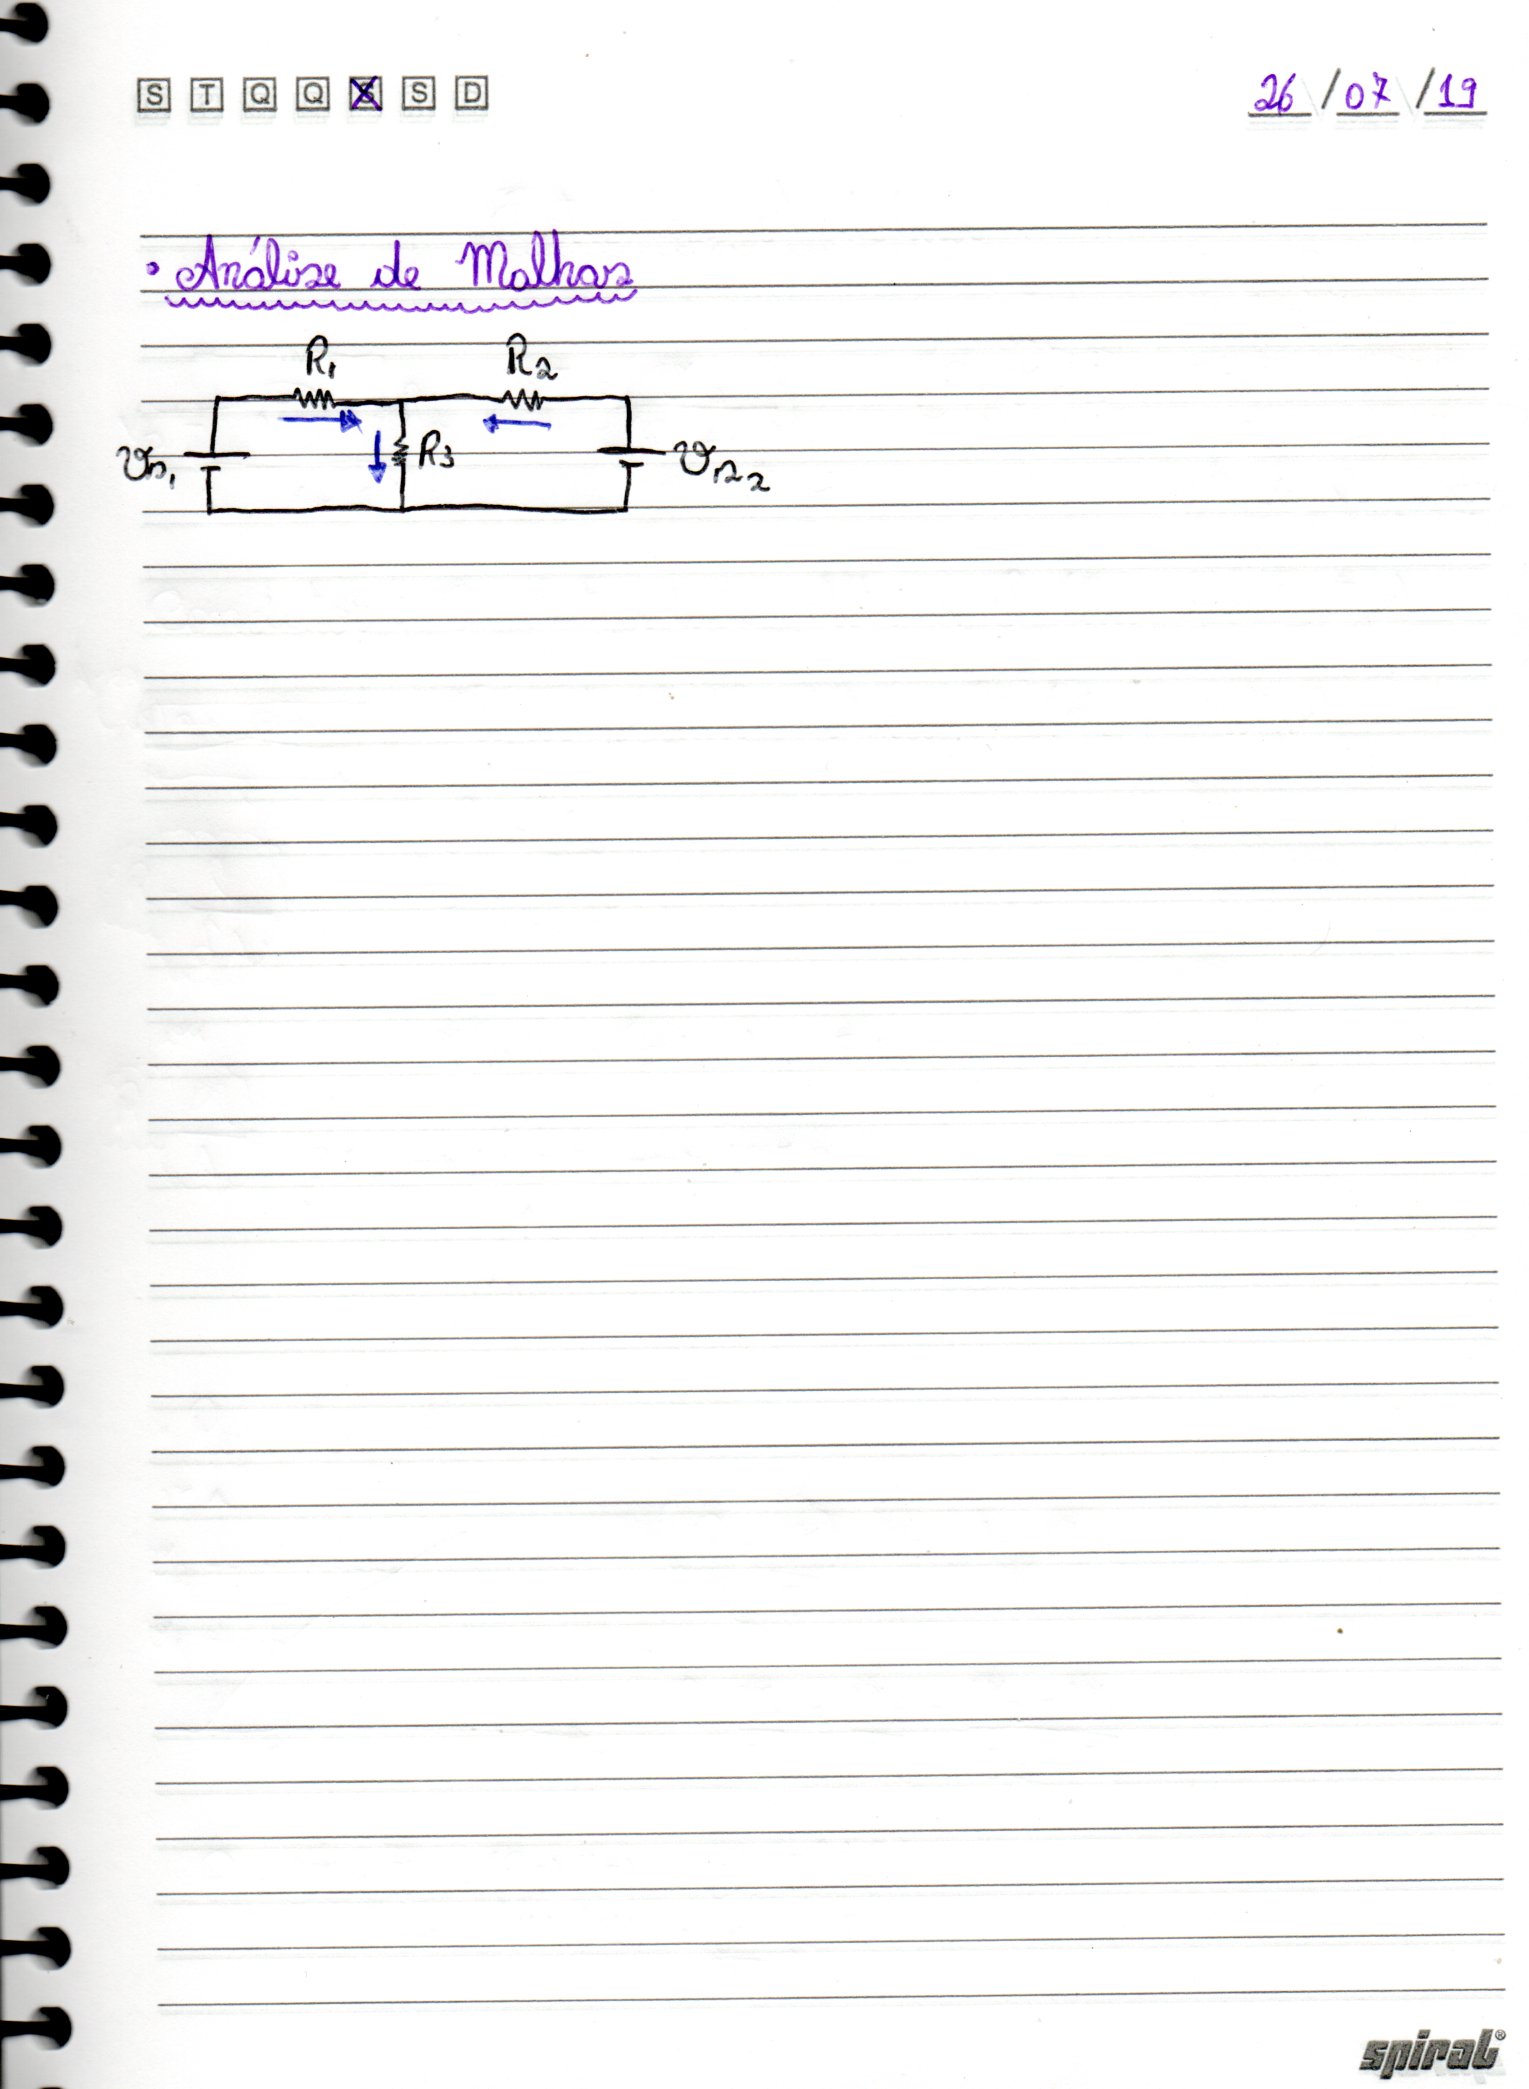 S T Q Q S S D 26/07/19
• Análise de Malhas
R₁ R₂
R₃
vs₁ vs₂
spiral®